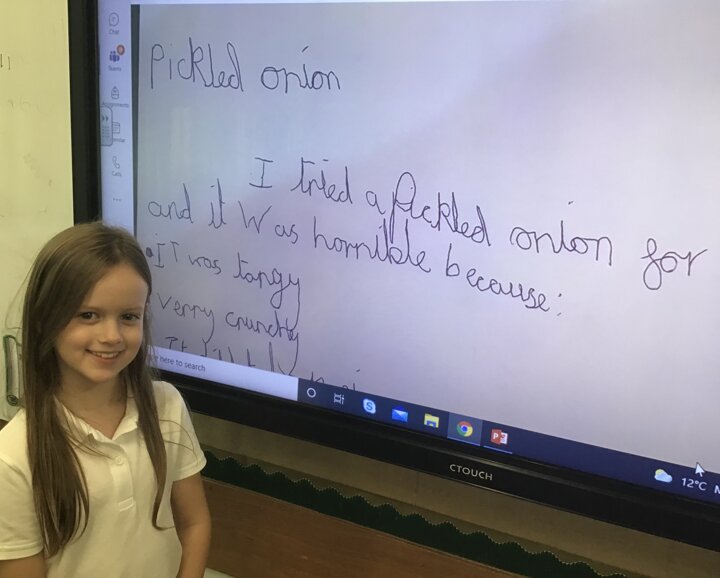 Chat
Teams
Assignments
Calls
Pickled onion
I tried a pickled onion for
and it was horrible because:
• IT was tangy
verry crunchy
It
here to search
CTOUCH
12°C